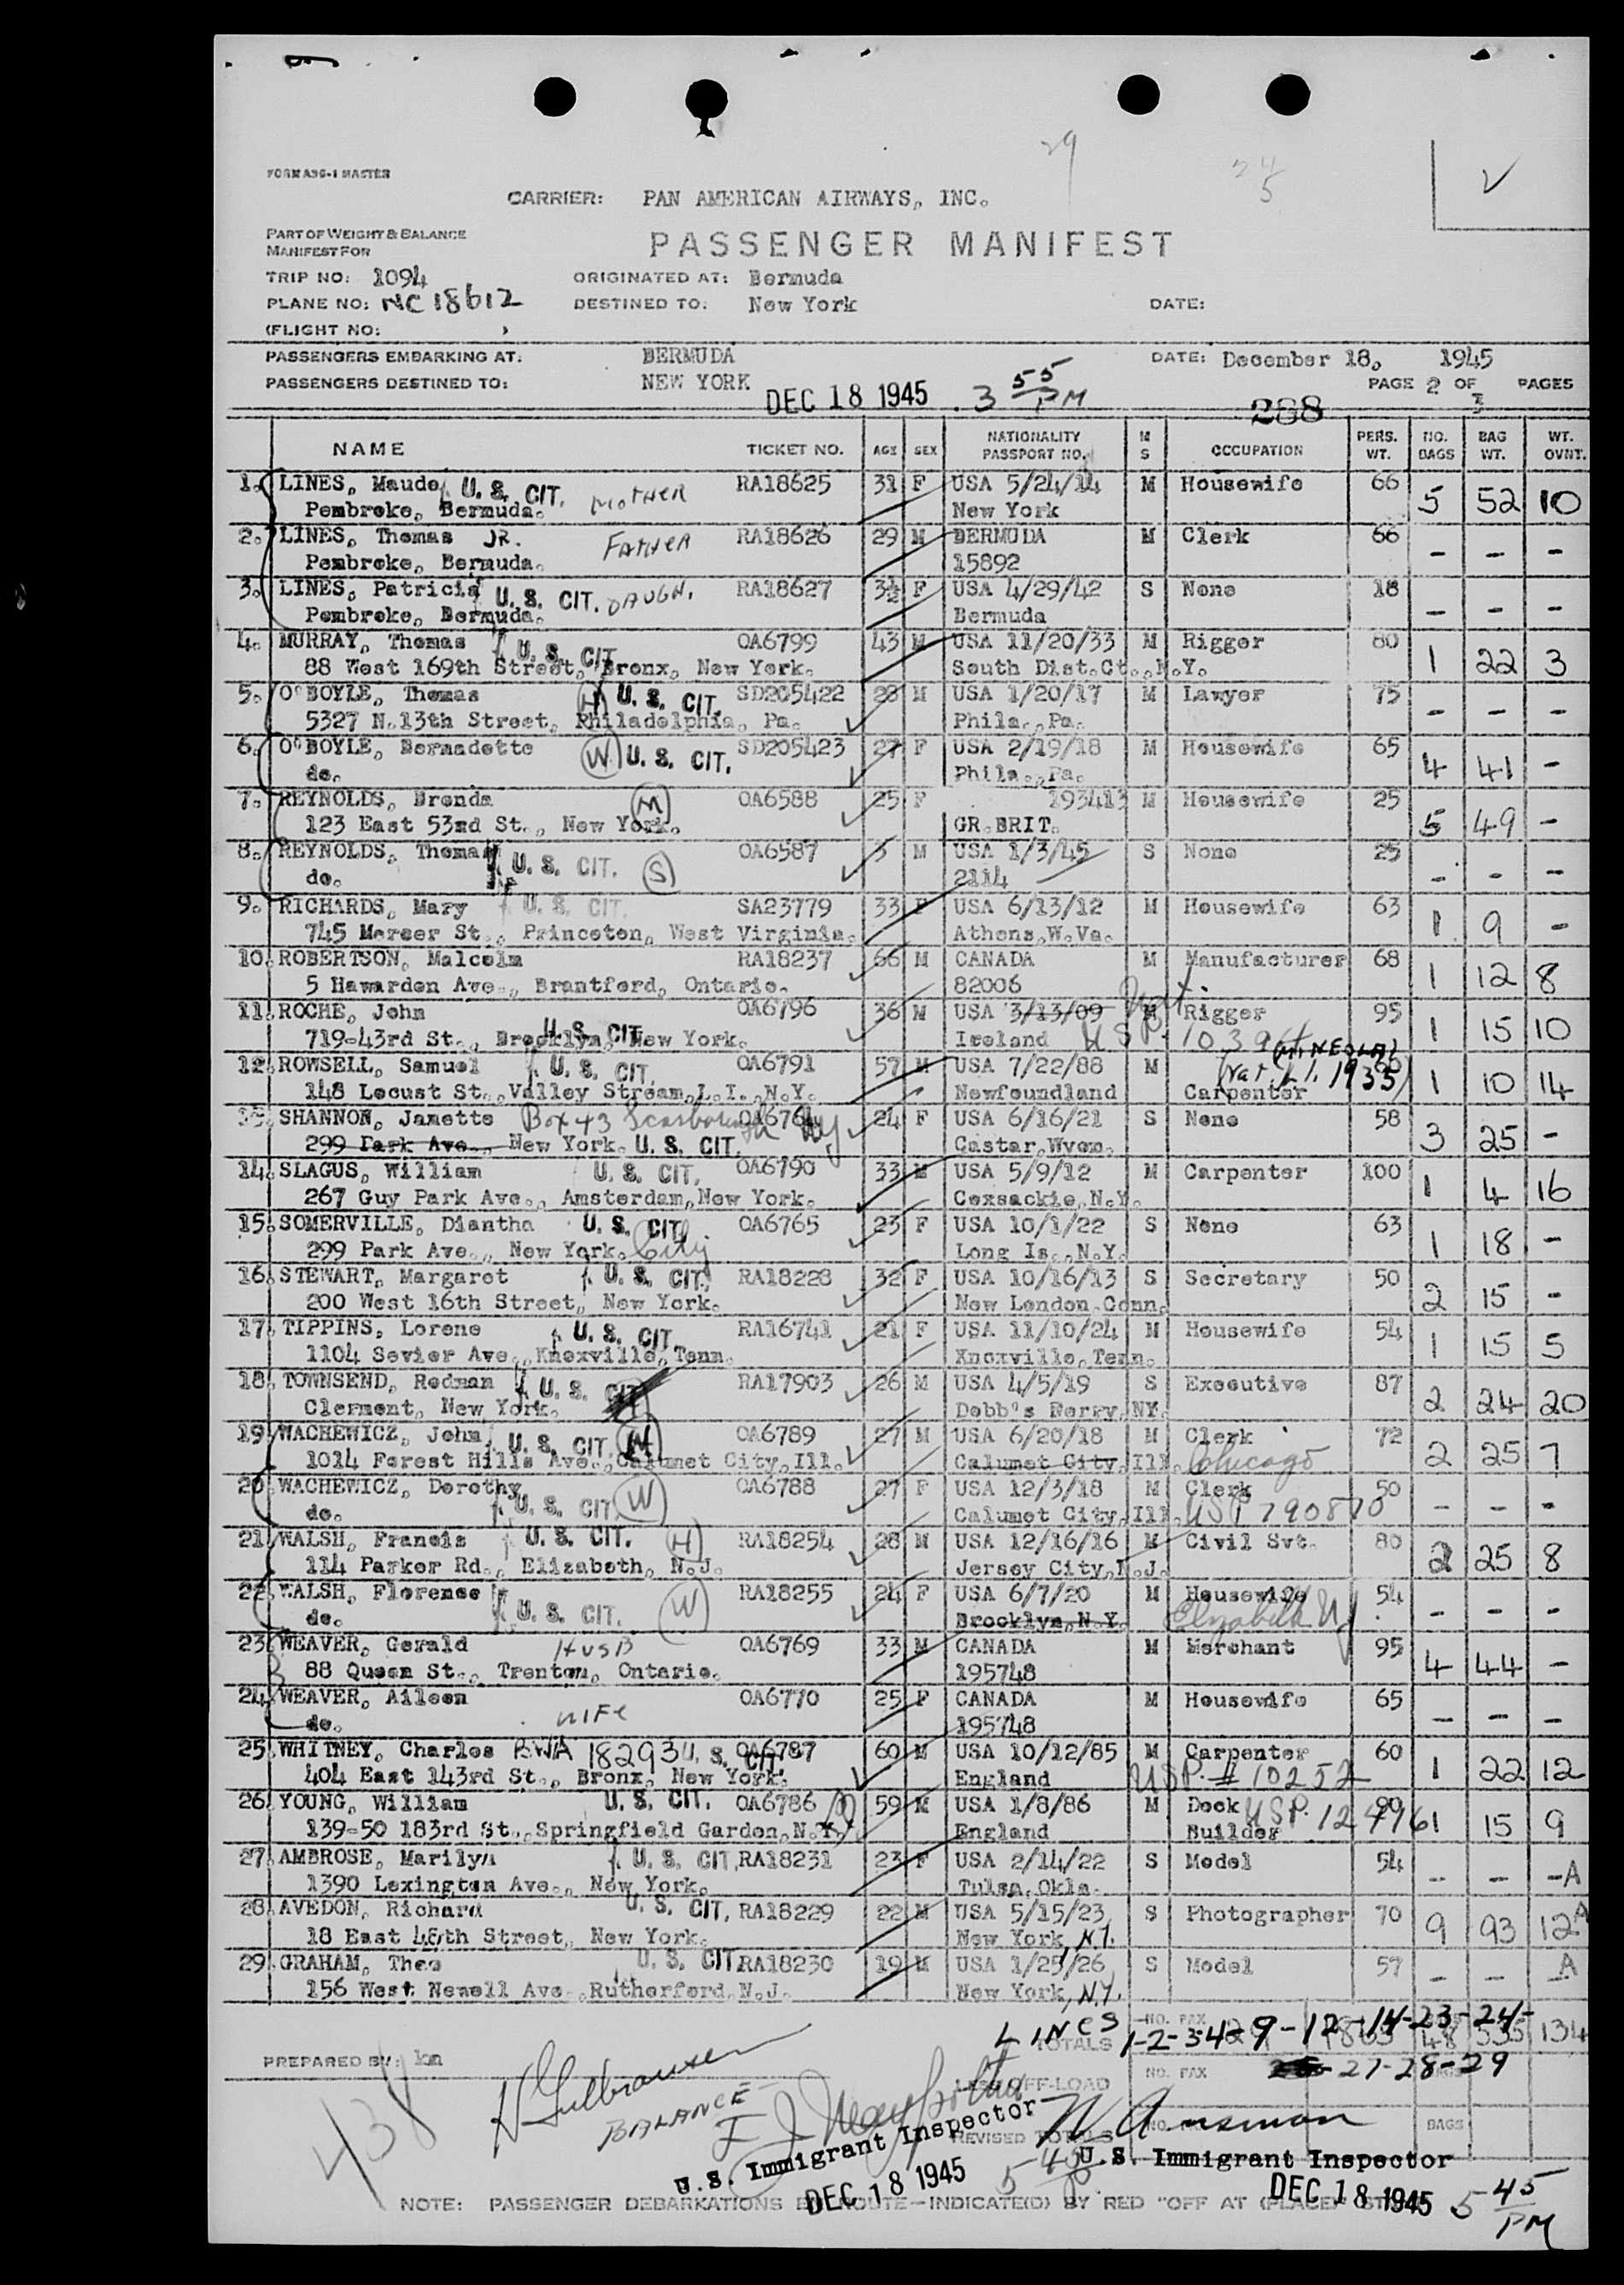 29
24
5
✓
FORM A96-1 MASTER
CARRIER: PAN AMERICAN AIRWAYS, INC.
PART OF WEIGHT & BALANCE
MANIFEST FOR
PASSENGER MANIFEST
TRIP NO: 1094 ORIGINATED AT: Bermuda
PLANE NO: NC 18612 DESTINED TO: New York DATE:
(FLIGHT NO: )
PASSENGERS EMBARKING AT: BERMUDA DATE: December 18, 1945
PASSENGERS DESTINED TO: NEW YORK DEC 18 1945 3 55 PM PAGE 2 OF PAGES
288
NAME TICKET NO. AGE SEX NATIONALITY PASSPORT NO. M S OCCUPATION PERS. WT. NO. BAGS BAG WT. WT. OVNT.
1. LINES, Maude U. S. CIT. MOTHER RA18625 31 F USA 5/24/14 M Housewife 66 5 52 10
Pembroke, Bermuda. New York
2. LINES, Thomas JR. FATHER RA18626 29 M BERMUDA M Clerk 66 - - -
Pembroke, Bermuda. 15892
3. LINES, Patricia U. S. CIT. DAUGH. RA18627 3½ F USA 4/29/42 S None 18 - - -
Pembroke, Bermuda. Bermuda
4. MURRAY, Thomas U. S. CIT. OA6799 43 M USA 11/20/33 M Rigger 80 1 22 3
88 West 169th Street, Bronx, New York. South Dist.Ct., N.Y.
5. O'BOYLE, Thomas (H) U. S. CIT. SD205422 28 M USA 1/20/17 M Lawyer 75 - - -
5327 N.13th Street, Philadelphia, Pa. Phila., Pa.
6. O'BOYLE, Bernadette (W) U. S. CIT. SD205423 27 F USA 2/19/18 M Housewife 65 4 41 -
do. Phila., Pa.
7. REYNOLDS, Brenda (M) OA6588 25 F 193413 M Housewife 25 5 49 -
123 East 53rd St., New York. GR.BRIT.
8. REYNOLDS, Thomas U. S. CIT. (S) OA6587 M USA 1/3/45 S None 25 - - -
do. 2114
9. RICHARDS, Mary U. S. CIT. SA23779 33 F USA 6/13/12 M Housewife 63 1 9 -
745 Mercer St., Princeton, West Virginia. Athens,W.Va.
10. ROBERTSON, Malcolm RA18237 66 M CANADA M Manufacturer 68 1 12 8
5 Hawarden Ave., Brantford, Ontario. 82006
11. ROCHE, John OA6796 36 M USA 3/13/09 Nat. M Rigger 95 1 15 10
719-43rd St., Brooklyn, New York. U. S. CIT. Ireland USP.
12. ROWSELL, Samuel U. S. CIT. OA6791 57 M USA 7/22/88 M (MINEOLA)
148 Locust St.,Valley Stream,L.I.,N.Y. Newfoundland Carpenter (Nat L.I. 1935) 1 10 14
SHANNON, Janette Box 43 Scarborough NY OA676 24 F USA 6/16/21 S None 58 3 25 -
299 Park Ave., New York. U. S. CIT. Castar,Wyom.
14. SLAGUS, William U. S. CIT. OA6790 33 M USA 5/9/12 M Carpenter 100 1 4 16
267 Guy Park Ave., Amsterdam,New York. Coxsackie,N.Y.
15. SOMERVILLE, Diantha U. S. CIT. OA6765 23 F USA 10/1/22 S None 63 1 18 -
299 Park Ave., New York. City Long Is., N.Y.
16. STEWART, Margaret U. S. CIT. RA18228 32 F USA 10/16/13 S Secretary 50 2 15 -
200 West 16th Street, New York. New London,Conn.
17. TIPPINS, Lorene U. S. CIT. RA16741 21 F USA 11/10/24 M Housewife 54 1 15 5
1104 Sevier Ave.,Knoxville,Tenn. Knoxville,Tenn.
18. TOWNSEND, Redman U. S. CIT RA17903 26 M USA 4/5/19 S Executive 87 2 24 20
Clermont, New York. Dobb's Ferry,NY.
19. WACHEWICZ, John U. S. CIT. (H) OA6789 27 M USA 6/20/18 M Clerk 72 2 25 7
1014 Forest Hills Ave.,Calumet City,Ill. Calumet City,Ill. Chicago
20. WACHEWICZ, Dorothy U. S. CIT. (W) OA6788 27 F USA 12/3/18 M Clerk 50 - - -
do. Calumet City,Ill. USP 790870
21. WALSH, Francis U. S. CIT. (H) RA18254 28 M USA 12/16/16 M Civil Svt. 80 2 25 8
114 Parker Rd., Elizabeth, N.J. Jersey City,N.J.
22. WALSH, Florence U. S. CIT. (W) RA18255 24 F USA 6/7/20 M Housewife 54 - - -
do. Brooklyn,N.Y. Elizabeth NJ
23. WEAVER, Gerald HUSB OA6769 33 M CANADA M Merchant 95 4 44 -
88 Queen St., Trenton, Ontario. 195748
24. WEAVER, Aileen OA6770 25 F CANADA M Housewife 65 - - -
do. WIFE 195748
25. WHITNEY, Charles 18293 U. S. CIT. OA6787 60 M USA 10/12/85 M Carpenter 60 1 22 12
404 East 143rd St., Bronx, New York. England USP. # 10252
26. YOUNG, William U. S. CIT. OA6786 59 M USA 1/8/86 M Dock 90 1 15 9
139-50 183rd St.,Springfield Garden,N.Y. England Builder USP. 12496
27. AMBROSE, Marilyn U. S. CIT. RA18231 23 F USA 2/14/22 S Model 54 - - -A
1390 Lexington Ave., New York. Tulsa,Okla.
28. AVEDON, Richard U. S. CIT. RA18229 22 M USA 5/15/23 S Photographer 70 9 93 12 A
18 East 48th Street, New York. New York, N.Y.
29. GRAHAM, Thea U. S. CIT. RA18230 19 M USA 1/25/26 S Model 57 - - - A
156 West Newell Ave.,Rutherford,N.J. New York, N.Y.
LINES 1-2-3-4-9-12-14-23-24-
TOTALS NO. PAX 48 535 134
27-28-29
PREPARED BY:
LESS OFF-LOAD NO. PAX BAGS
BALANCE
REVISED TOTALS NO. BAGS
U. S. Immigrant Inspector
U. S. Immigrant Inspector
DEC 18 1945 5 45 P
DEC 18 1945 5 45 PM
NOTE: PASSENGER DEBARKATIONS EN ROUTE—INDICATE(D) BY RED "OFF AT (PLACE)"